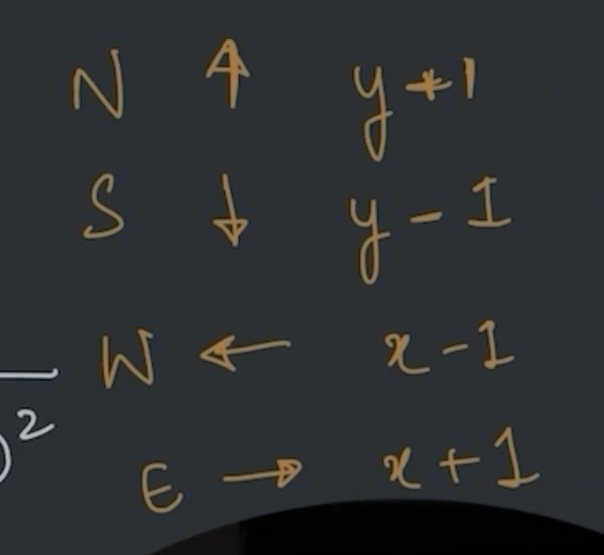 N ↑ y+1
S ↓ y-1
W ← x-1
)²
E → x+1